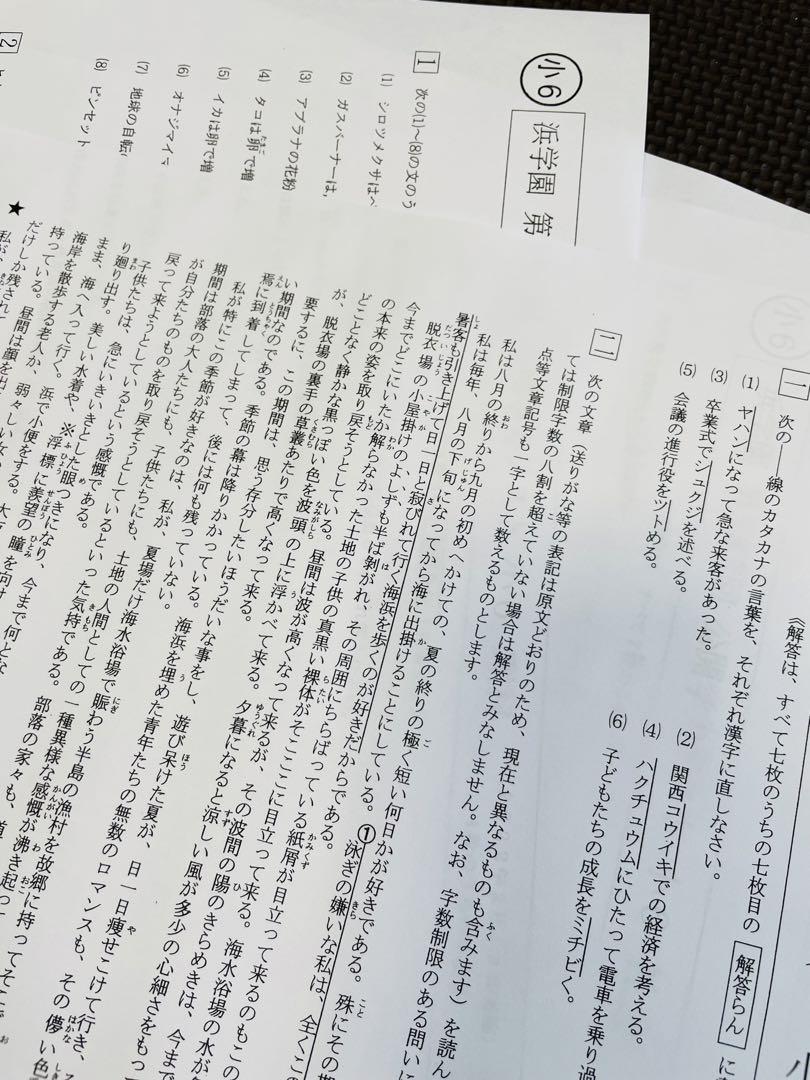 小6
浜学園 第
1 次の(1)～(8)の文のう
(1) シロツメクサはベ
(2) ガスバーナーは,
(3) アブラナの花粉
(4) タコは卵で増
(5) イカは卵で増
(6) オナジマイマ
(7) 地球の自転
(8) ピンセット
2
《解答は、すべて七枚のうちの七枚目の 解答らん に
一 次の――線のカタカナの言葉を、それぞれ漢字に直しなさい。
(1) ヤハンになって急な来客があった。
(2) 関西コウイキでの経済を考える。
(3) 卒業式でシュクジを述べる。
(4) ハクチュウムにひたって電車を乗り過
(5) 会議の進行役をツトめる。
(6) 子どもたちの成長をミチビく。
二 次の文章（送りがな等の表記は原文どおりのため、現在と異なるものも含みます）を読ん
ては制限字数の八割を超えていない場合は解答とみなしません。なお、字数制限のある問いに
点等文章記号も一字として数えるものとします。
私は八月の終りから九月の初めへかけての、夏の終りの極く短い何日かが好きである。殊にその期
私は毎年、八月の下旬になってから海に出掛けることにしている。①泳ぎの嫌いな私は、全くこの
暑客も引き上げて日一日と寂びれて行く海浜を歩くのが好きだからである。
脱衣場の小屋掛けのよしずも半ば剝がれ、その周囲にちらばっている紙屑が目立って来るのもこの
今までどこにいたか解らなかった土地の子供の真黒い裸体がそこここに目立って来る。海水浴場の水が
の本来の姿を取り戻そうとしている。昼間は波が高くなって来るが、その波間の陽のきらめきは、今まで
どことなく静かな黒っぽい色を波頭の上に浮かべて来る。夕暮になると涼しい風が多少の心細さをもっ
が、脱衣場の裏手の草叢あたりで高くなって来る。
要するに、この期間は、思う存分したいほうだいな事をし、遊び呆けた夏が、日一日瘦せこけて行き、
い期間なのである。季節の幕は降りかかっている。海浜を埋めた青年たちの無数のロマンスも、その儚い色
焉に到着してしまって、後には何も残っていない。
私が特にこの季節が好きなのは、私が、夏場だけ海水浴場で賑わう半島の漁村を故郷に持ってそこで
期間は部落の大人たちにも、子供たちにも、土地の人間としての一種異様な感慨が沸き起っ
が自分たちのものを取り戻そうとしているといった気持である。部落の家々も、道
戻って来ようとしているという感慨である。
子供たちは、急にいきいきとした眼つきになり、今まで何とな
り廻り出す。美しい水着や、※浮標に羨望の瞳を向け
まま、海へ入って行く。浜で小便をする。
海岸を散歩する老人か、弱々しい
持っている。昼間は顔を出
だけしか残されて
★ 私が、